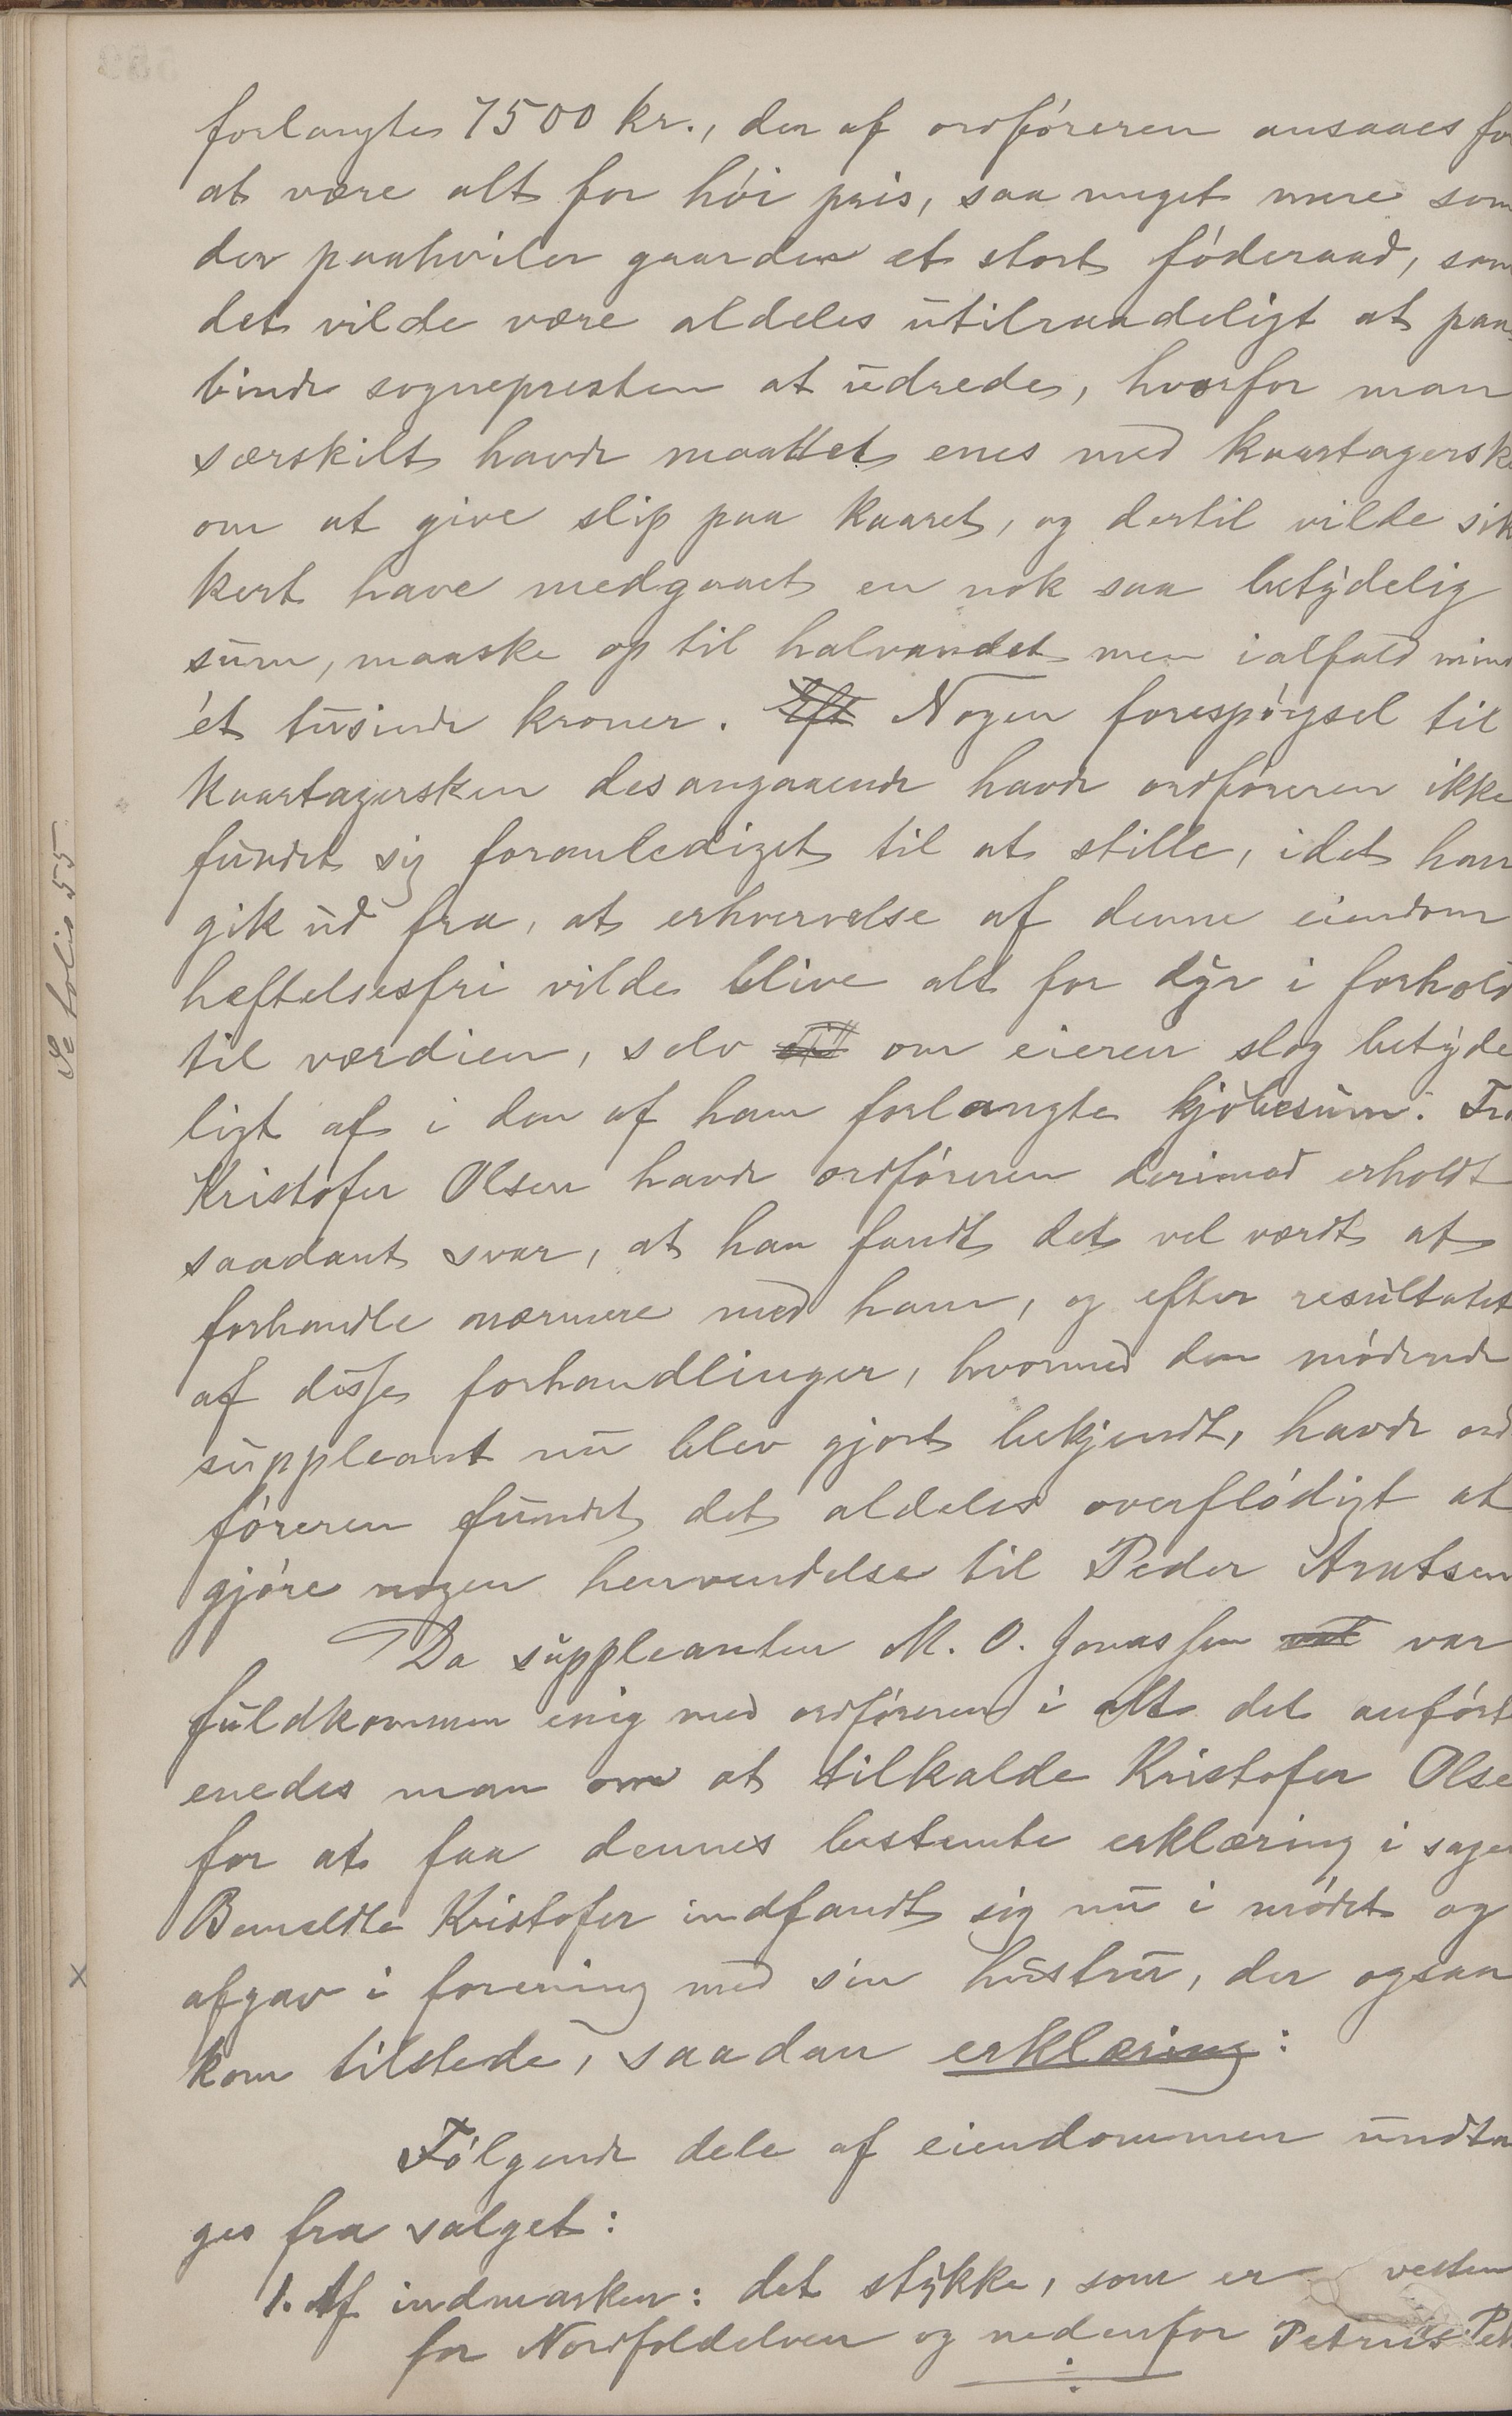 forlangte 7500 kr., der af ordføreren ansaaes for
at være alt for høi pris, saa meget mere som
der paahviler gaarden et stort føderaad, som
det vilde være aldeles utilraadeligt at paa-
binde sognepresten at udrede, hvorfor man
særskilt havde maattet enes med kaartagerske
om at give slip paa kaaret, og dertil vilde sik
kert have medgaaet en nok saa betydelig
sum, maaske op til halvandet men ialfald mind
ét tusinde kroner. Eft Nogen forespørgsel til
kaartagersken desangaaende havde ordføreren ikke
fundet sig foranlediget til at stille, idet han
gik ud fra, at erhvervelse af denne eiendom
heftelsesfri vilde blive alt for dyr i forhold
til værdien, selv om eieren slog betyde
ligt af i den af ham forlangte kjøbesum. Fra
Kristofer Olsen havde ordføreren derimod erholdt
saadant svar, at han fandt det vel værdt at
forhandle nærmere med ham, og efter resultatet
af disse forhandlinger, hvormed den mødende
suppleant nu blev gjort bekjendt, havde ord
føreren fundet det aldeles overflødigt at
gjøre nogen henvendelse til Peder Arntsen
Da suppleanten M. O. Jonassen var
fuldkommen enig med ordføreren i alt det anført
enedes man om at tilkalde Kristofer Olse
for at faa dennes bestemte erklæring i sagen
Bemeldte Kristofer indfandt sig nu i mødet og
afgav i forening med sin hustru, der ogsaa
kom tilstede, saadan erklæring:
Følgende dele af eiendommen undta
ges fra salget:
1. Af indmarken: det stykke, som er vesten
for Nordfoldelven og nedenfor Petrus Pet
Se folio 55
x